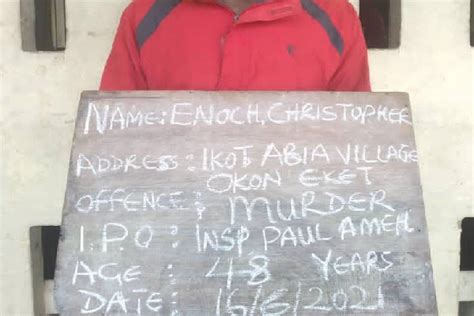 NAME: ENOCH, CHRISTOPHER
ADDRESS: IKOT ABIA VILLAGE
OKON EKET
OFFENCE: MURDER
I.P.O: INSP PAUL AMEH
AGE: 48 YEARS
DATE: 16/6/2021